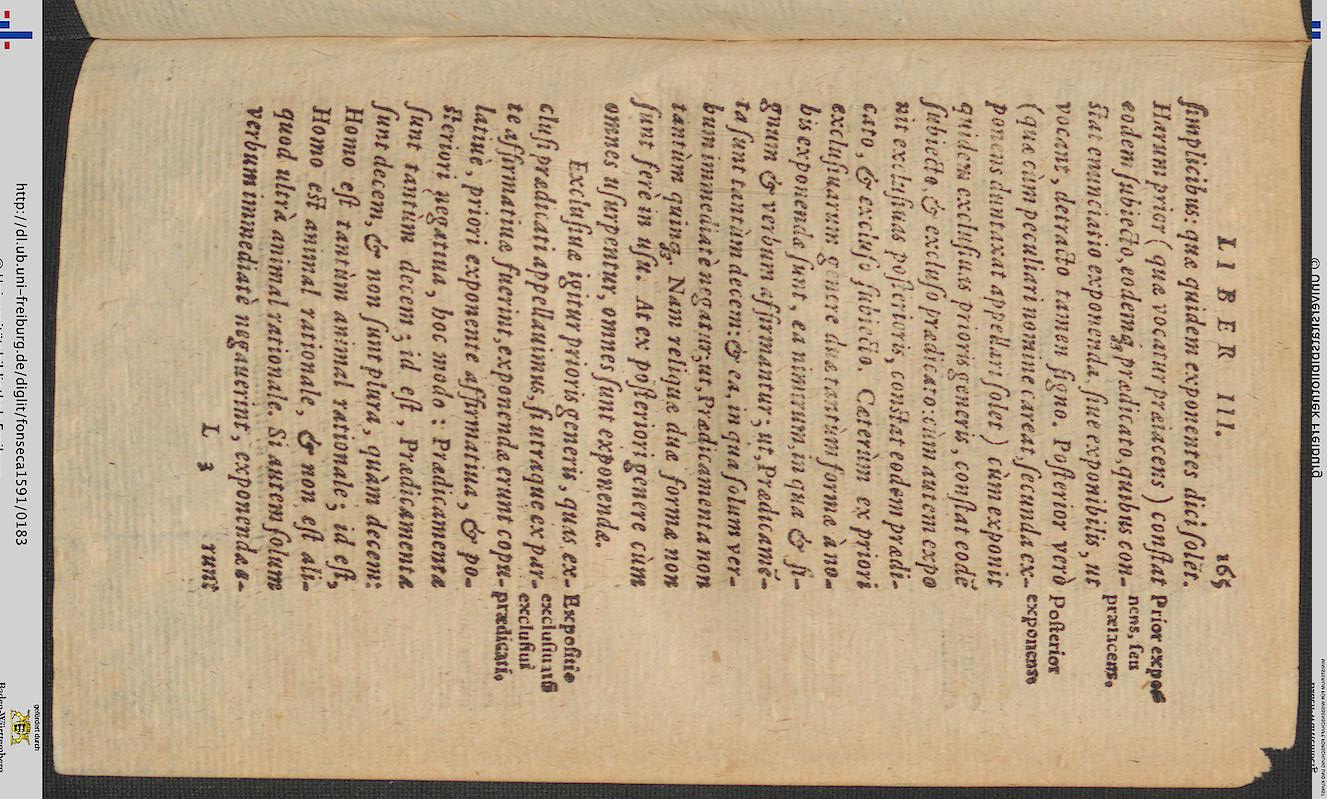 LIBER III. 165
ſimplicibus: quæ quidem exponentes dici ſolẽt.
Harum prior (quæ vocatur præiacens) conſtat
eodem ſubiecto, eodemq́; prædicato, quibus con-
ſtat enunciatio exponenda, ſiue exponibilis, ut
vocant, detracto tamen ſigno. Poſterior verò
(quæ cùm peculiari nomine careat, ſecunda ex-
ponens duntaxat appellari ſolet) cùm exponit
quidem excluſiuas prioris generis, conſtat eodẽ
ſubiecto, & excluſo prædicato: cùm autem expo
nit excluſiuas poſterioris, conſtat eodem prædi-
cato, & excluſo ſubiecto. Cæterùm ex priori
excluſiuarum genere duæ tantùm formæ à no-
bis exponendæ ſunt, ea nimirum, in qua & ſi-
gnum & verbum affirmantur; ut, Prædicamẽ-
ta ſunt tantùm decem: & ea, in qua ſolum ver-
bum immediatè negatur; ut, Prædicamenta non
tantùm quinq́; Nam reliquæ duæ formæ non
ſunt ferè in uſu. At ex poſteriori genere cùm
omnes uſurpentur, omnes ſunt exponendæ.
Excluſiuæ igitur prioris generis, quas ex-
cluſi prædicati appellauimus, ſi utraque ex par-
te affirmatiuæ fuerint, exponendæ erunt copu-
latiuè, priori exponente affirmatiua, & po-
ſteriori negatiua, hoc modo: Prædicamenta
ſunt tantùm decem; id eſt, Prædicamenta
ſunt decem, & non ſunt plura, quàm decem:
Homo eſt tantùm animal rationale; id eſt,
Homo eſt animal rationale, & non eſt ali-
quod ultrà animal rationale. Si autem ſolum
verbum immediatè negauerint, exponendæ e-
L 3 runt
Prior expo
nens, ſeu
præiacens.
Poſterior
exponens.
Expoſitio
excluſiuarũ
excluſiui
prædicati.
http://dl.ub.uni-freiburg.de/diglit/fonseca1591/0183
gefördert durch